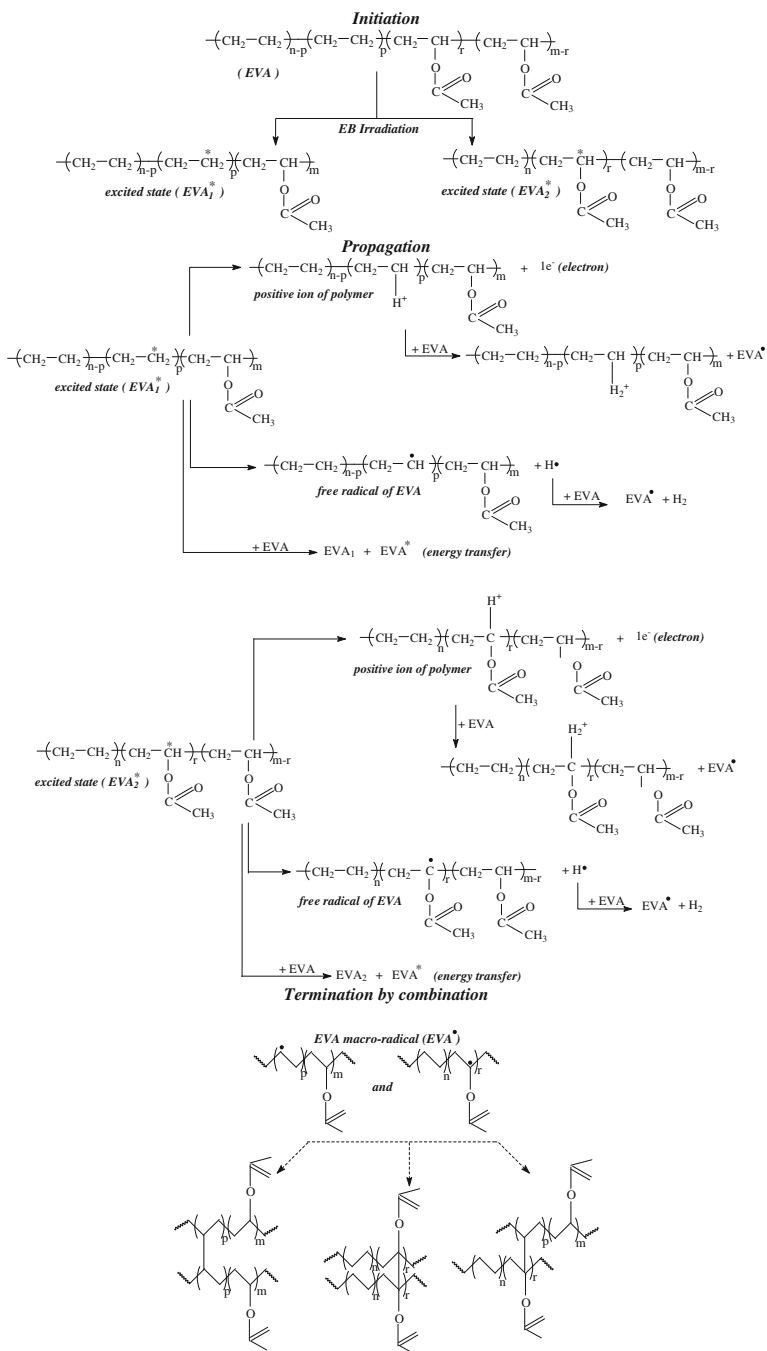 Initiation
(CH2—CH2)n-p(CH2—CH2)p(CH2—CH)r(CH2—CH)m-r
O O
(EVA)
C O C O
CH3 CH3
EB Irradiation
(CH2—CH2)n-p(CH2—*CH2)p(CH2—CH)m
O
C O
CH3
excited state (EVA1*)
(CH2—CH2)n(CH2—*CH)r(CH2—CH)m-r
O O
C O C O
CH3 CH3
excited state (EVA2*)
Propagation
(CH2—CH2)n-p(CH2—CH)p(CH2—CH)m + 1e- (electron)
H+ O
positive ion of polymer
C O
CH3
+ EVA
(CH2—CH2)n-p(CH2—CH)p(CH2—CH)m + EVA•
H2+ O
C O
CH3
(CH2—CH2)n-p(CH2—*CH2)p(CH2—CH)m
O
excited state (EVA1*)
C O
CH3
(CH2—CH2)n-p(CH2—•CH)p(CH2—CH)m + H•
O
free radical of EVA
C O
CH3
+ EVA EVA• + H2
+ EVA EVA1 + EVA* (energy transfer)
H+
(CH2—CH2)n(CH2—C)r(CH2—CH)m-r + 1e- (electron)
O O
positive ion of polymer
C O C O
CH3 CH3
+ EVA
H2+
(CH2—CH2)n(CH2—C)r(CH2—CH)m-r + EVA•
O O
C O C O
CH3 CH3
(CH2—CH2)n(CH2—*CH)r(CH2—CH)m-r
O O
excited state (EVA2*)
C O C O
CH3 CH3
(CH2—CH2)n(CH2—•C)r(CH2—CH)m-r + H•
O O
free radical of EVA
C O C O
CH3 CH3
+ EVA EVA• + H2
+ EVA EVA2 + EVA* (energy transfer)
Termination by combination
EVA macro-radical (EVA•)
p m n r
O and O
O O O
p m n r p m
p m n r n r
O O O